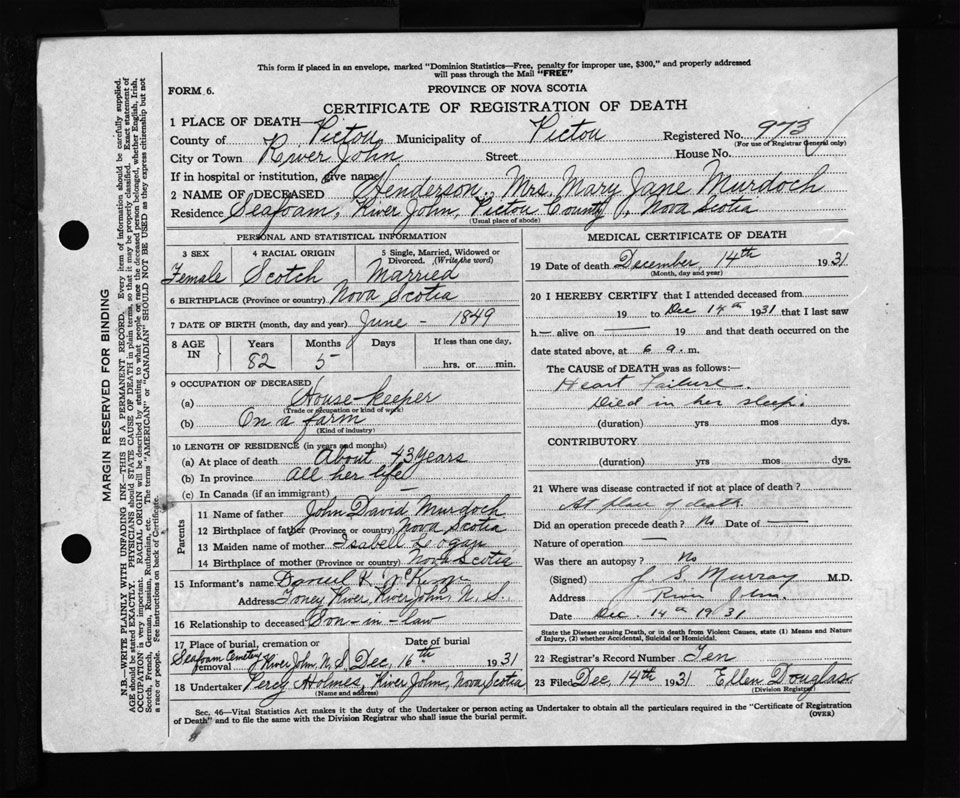 This form if placed in an envelope, marked "Dominion Statistics—Free, penalty for improper use, $300," and properly addressed
will pass through the Mail "FREE"
FORM 6.
PROVINCE OF NOVA SCOTIA
CERTIFICATE OF REGISTRATION OF DEATH
1 PLACE OF DEATH—
County of Pictou Municipality of Pictou Registered No. 973
(For use of Registrar General only)
City or Town River John Street House No.
If in hospital or institution, give name
2 NAME OF DECEASED Henderson, Mrs. Mary Jane Murdoch
Residence Seafoam, River John, Pictou County, Nova Scotia
(Usual place of abode)
PERSONAL AND STATISTICAL INFORMATION
3 SEX Female
4 RACIAL ORIGIN Scotch
5 Single, Married, Widowed or Divorced. (Write the word) Married
6 BIRTHPLACE (Province or country) Nova Scotia
7 DATE OF BIRTH (month, day and year) June - 1849
8 AGE IN
Years Months Days If less than one day,
82 5 hrs. or min.
9 OCCUPATION OF DECEASED
(a) House-keeper
(Trade or occupation or kind of work)
(b) On a farm
(Kind of industry)
10 LENGTH OF RESIDENCE (in years and months)
(a) At place of death About 43 years
(b) In province All her life
(c) In Canada (if an immigrant) —
Parents
11 Name of father John David Murdoch
12 Birthplace of father (Province or country) Nova Scotia
13 Maiden name of mother Isabell Logan
14 Birthplace of mother (Province or country) Nova Scotia
15 Informant's name Daniel K.
Address Toney River, River John, N. S.
16 Relationship to deceased Son-in-law
17 Place of burial, cremation or removal Date of burial
Seafoam Cemetery River John, N. S. Dec, 16th 1931
18 Undertaker Percy Holmes, River John, Nova Scotia
(Name and address)
MEDICAL CERTIFICATE OF DEATH
19 Date of death December, 14th 1931
(Month, day and year)
20 I HEREBY CERTIFY that I attended deceased from
19 to Dec 14th 1931 that I last saw
h— alive on — 19 and that death occurred on
date stated above, at 6 a. m.
The CAUSE of DEATH was as follows:—
Heart Failure.
Died in her sleep.
(duration) yrs mos dys.
CONTRIBUTORY
(duration) yrs mos dys.
21 Where was disease contracted if not at place of death?
At place of death
Did an operation precede death? No Date of —
Nature of operation —
Was there an autopsy? No
(Signed) J. S. Murray M.D.
Address River John.
Date Dec. 14th 1931
State the Disease causing Death, or in death from Violent Causes, state (1) Means and Nature
of Injury, (2) whether Accidental, Suicidal or Homicidal.
22 Registrar's Record Number Ten
23 Filed Dec, 14th 1931 Ellen Douglas
(Division Registrar)
Sec. 46—Vital Statistics Act makes it the duty of the Undertaker or person acting as Undertaker to obtain all the particulars required in the "Certificate of Registration
of Death" and to file the same with the Division Registrar who shall issue the burial permit.
(OVER)
MARGIN RESERVED FOR BINDING
N.B.—WRITE PLAINLY WITH UNFADING INK—THIS IS A PERMANENT RECORD. Every item of information should be carefully supplied.
AGE should be stated EXACTLY. PHYSICIANS should STATE CAUSE OF DEATH in plain terms, so that it may be properly classified. Exact statement of
OCCUPATION is very important. RACIAL ORIGIN will be described by stating to what people or race the deceased person belonged, whether English, Irish,
Scotch, French, German, Russian, Ruthenian, etc. The terms "AMERICAN" or "CANADIAN" SHOULD NOT BE USED as they express citizenship but not
a race or people. See instructions on back of Certificate.